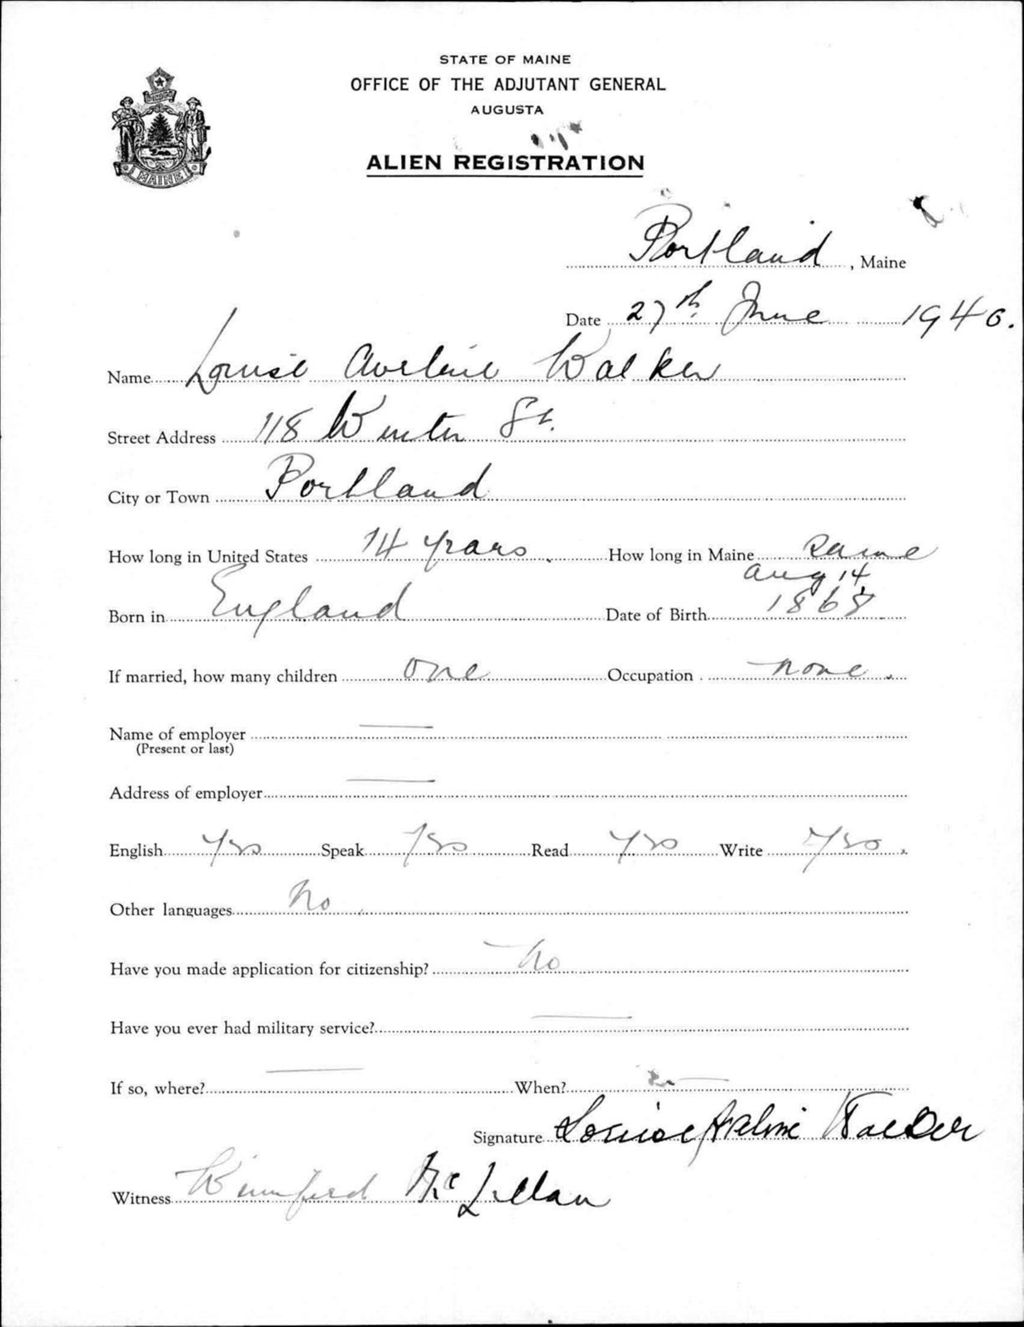 STATE OF MAINE
OFFICE OF THE ADJUTANT GENERAL
AUGUSTA
ALIEN REGISTRATION
MAINE
Portland, Maine
Date 27th June 1940.
Name Louise Aveline Walker
Street Address 118 Winter St.
City or Town Portland
How long in United States 14 years. How long in Maine Same
Born in England Date of Birth Aug 14, 1868
If married, how many children one Occupation none.
Name of employer —
(Present or last)
Address of employer —
English Yes Speak Yes Read Yes Write Yes.
Other languages No
Have you made application for citizenship? No
Have you ever had military service? —
If so, where? — When? —
Signature Louise Walker
Witness Winnifred McLellan